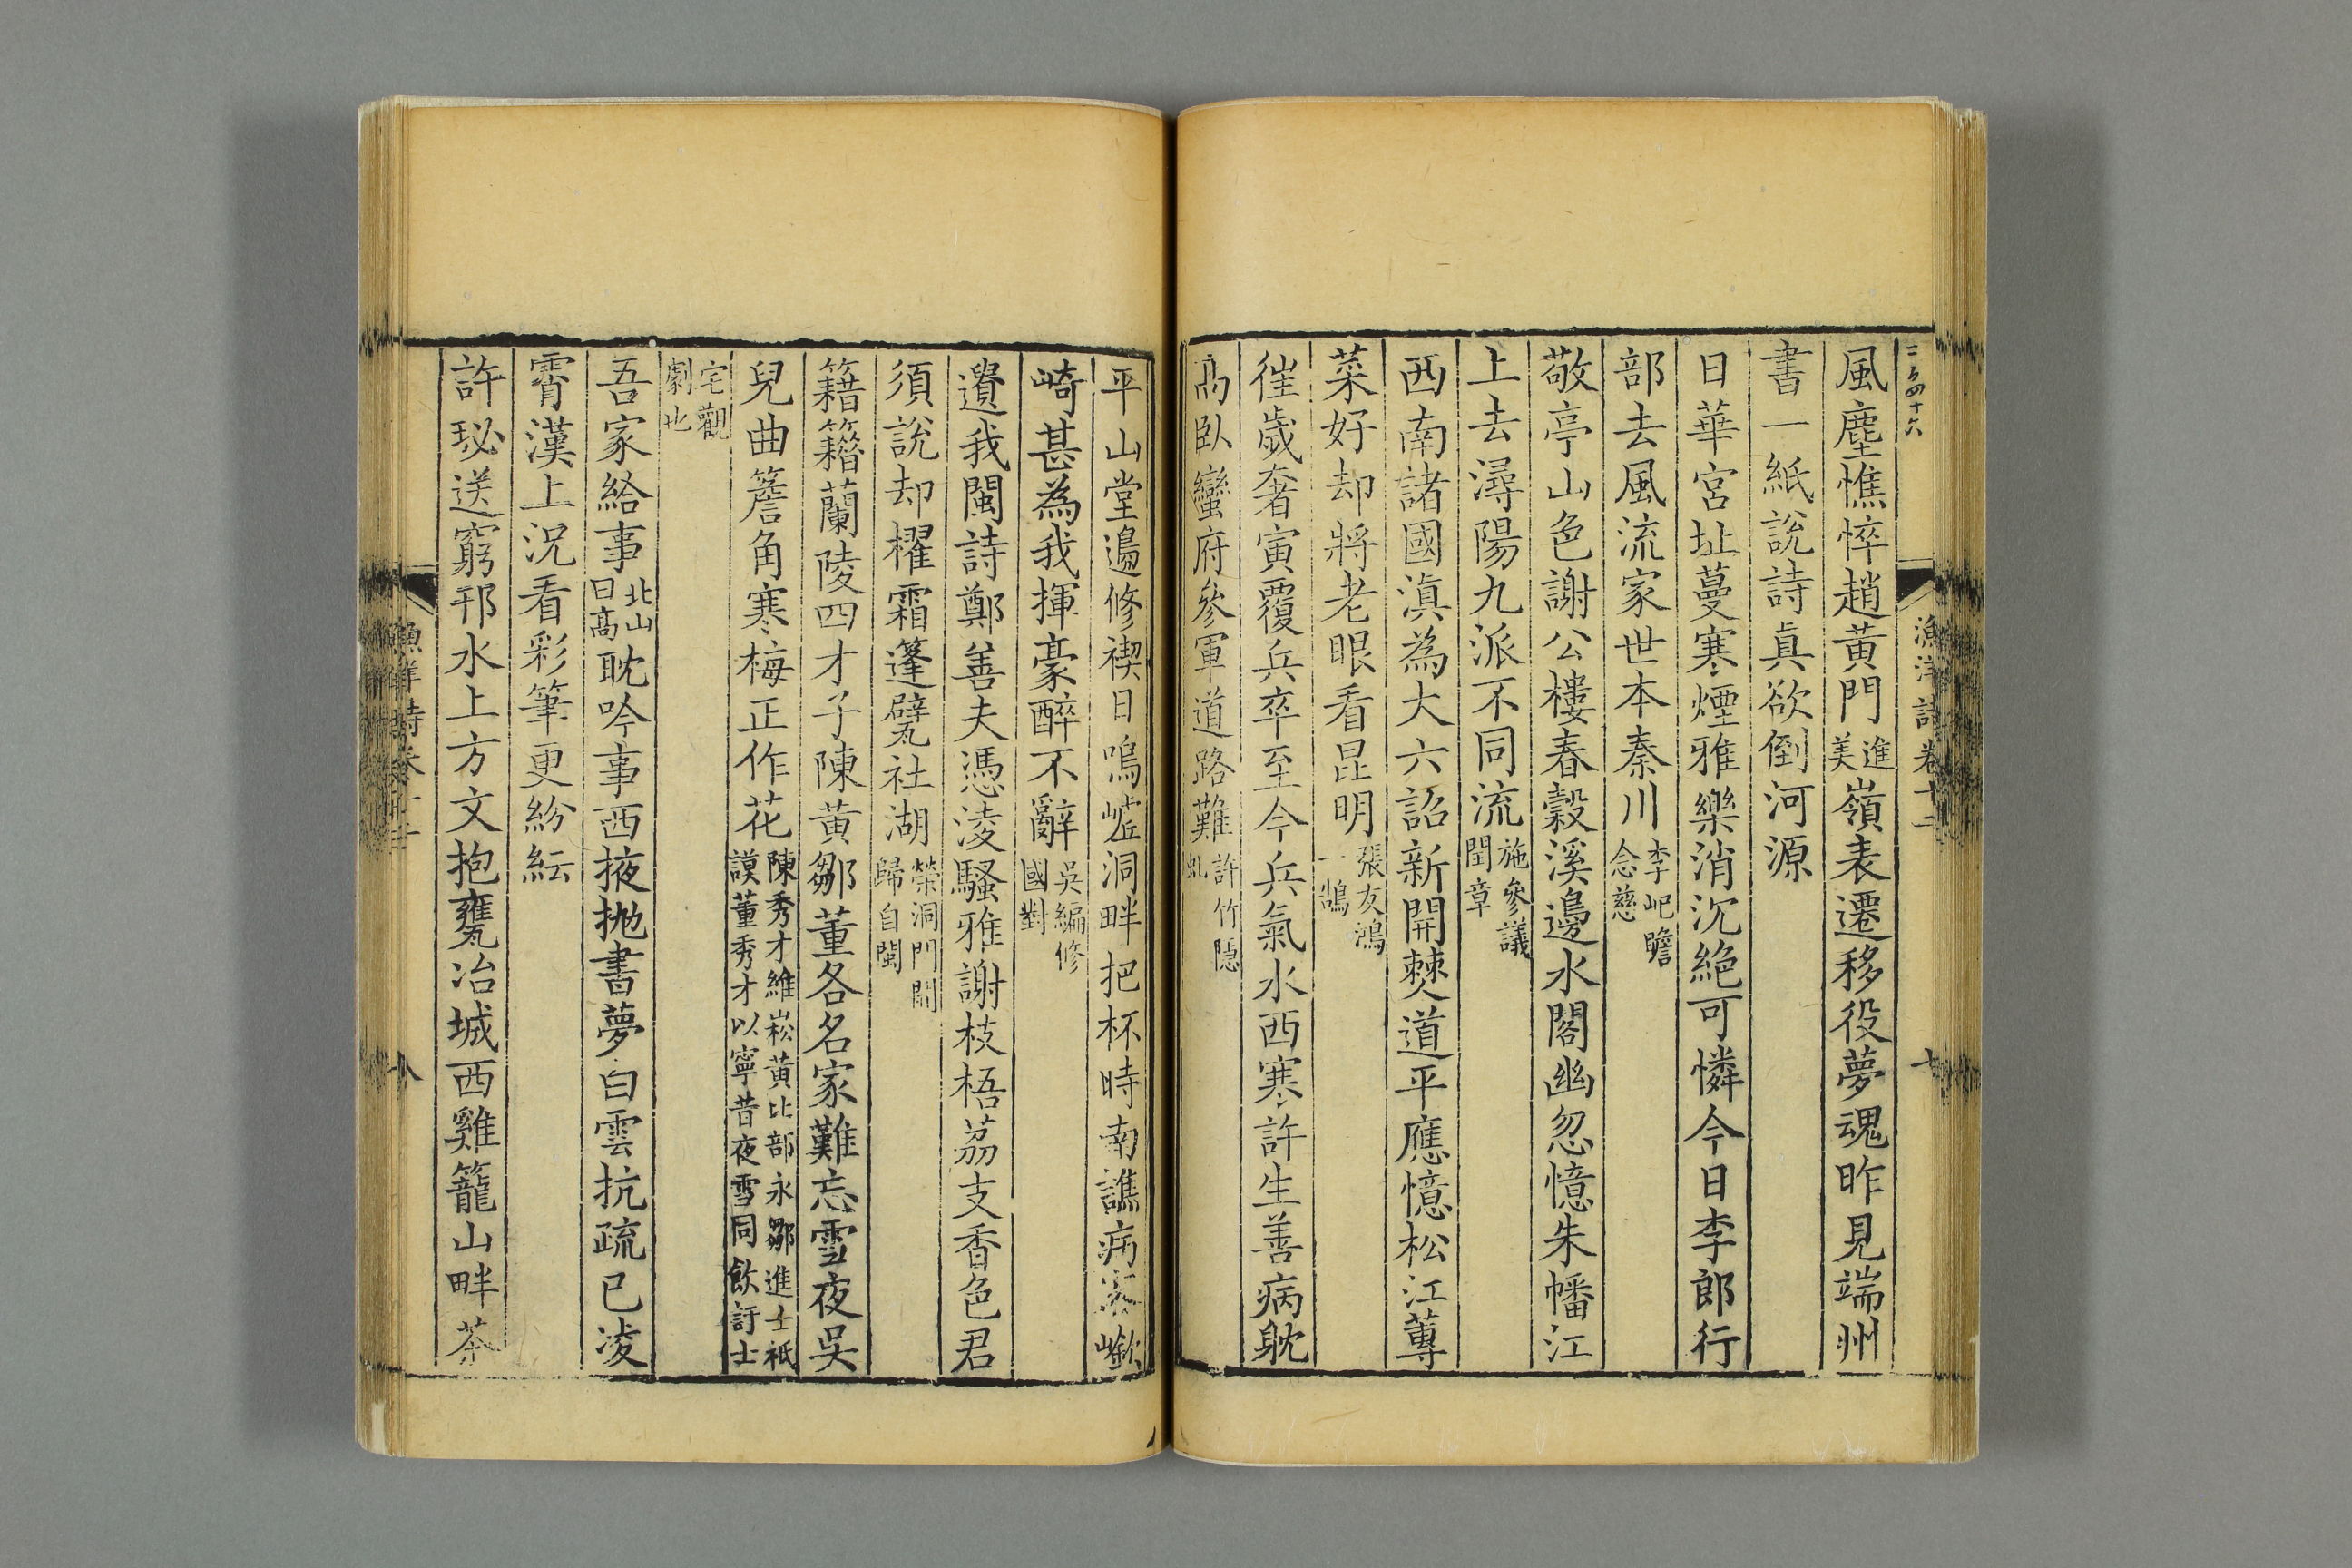 二百四十六
風塵憔悴趙黃門進美嶺表遷移役夢魂昨見端州
書一紙說詩真欲倒河源
日華宮址蔓寒煙雅樂消沉絕可憐今日李郎行
部去風流家世本秦川李屺瞻念慈
敬亭山色謝公樓春穀溪邊水閣幽忽憶朱幡江
上去潯陽九派不同流施參議閏章
西南諸國滇為大六詔新開僰道平應憶松江蓴
菜好却將老眼看昆明張友鴻一鵠
徃歲奢寅覆兵卒至今兵氣水西寒許生善病躭
高臥蠻府參軍道路難許竹隱虬
漁洋詩卷十二
平山堂邊修禊日嗚嵖洞畔把杯時南譙病客嶔
崎甚為我揮毫醉不辭吳編修國對
遺我閩詩鄭善夫憑凌騷雅謝枝梧茘支香色君
須說却櫂霜篷甓社湖榮洞門開歸自閩
籍籍蘭陵四才子陳黃鄒董各名家難忘雪夜吳
兒曲簷角寒梅正作花陳秀才維崧黃比部永鄒進士祗謨董秀才以寧昔夜雪同飲訏士
宅觀劇也
吾家給事北山日高耽吟事西掖抛書夢白雲抗疏已凌
霄漢上況看彩筆更紛紜
許珌送窮邗水上方文抱甕冶城西雞籠山畔茶
漁洋詩卷十二
八